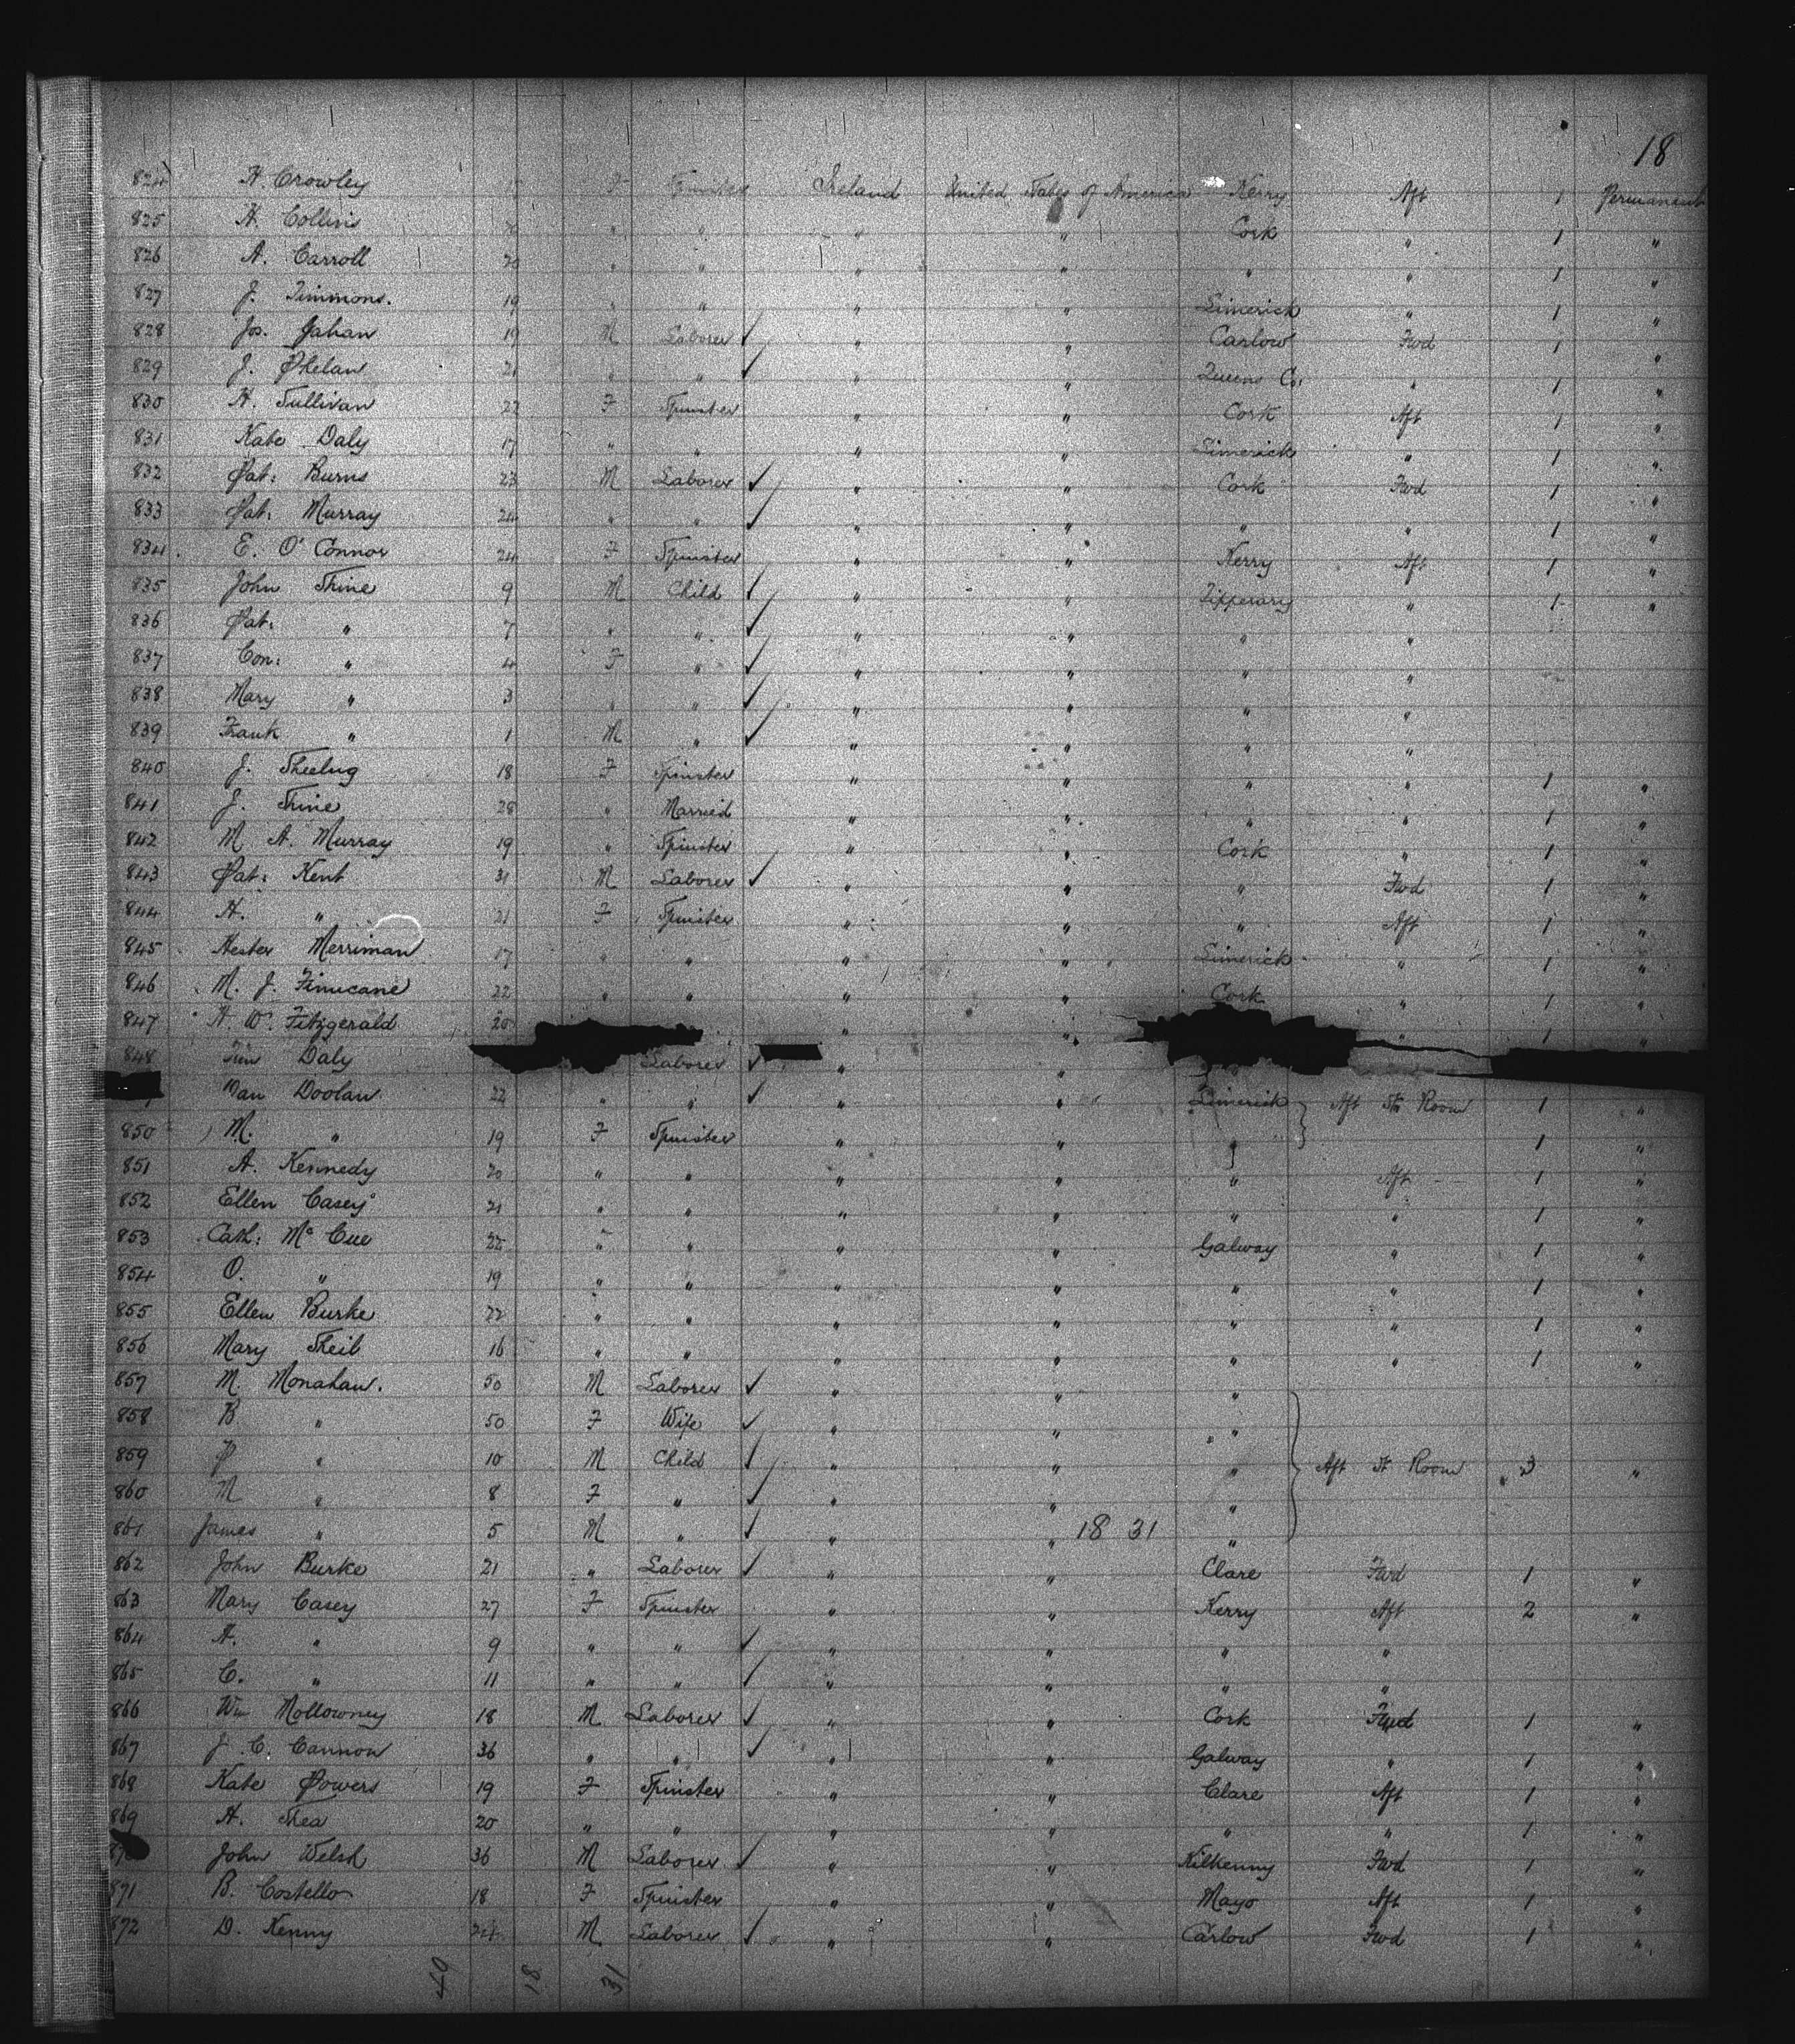 18
824 H. Crowley F Spinster Ireland United States of America Kerry Aft 1 Permanent
825 H. Collins " " " " Cork " 1 "
826 A. Carroll 20 " " " " " " 1 "
827 J. Timmons. 19 " " " " Limerick " 1 "
828 Jos. Gahan 19 M Laborer ✓ " " Carlow Fwd 1 "
829 J. Phelan 21 " " ✓ " " Queens Co. " 1 "
830 H. Sullivan 22 F Spinster " " Cork Aft 1 "
831 Kate Daly 17 " " " " Limerick " 1 "
832 Pat: Burns 23 M Laborer ✓ " " Cork Fwd 1 "
833 Pat: Murray 24 " " ✓ " " " " 1 "
834 E. O'Connor 24 F Spinster " " Kerry Aft 1 "
835 John Shine 9 M Child ✓ " " Tipperary " 1 "
836 Pat: " 7 " " ✓ " " " "
837 Con: " 4 F " ✓ " " " "
838 Mary " 3 " " ✓ " " " "
839 Frank " 1 M " ✓ " " " "
840 J. 18 F Spinster " " " " 1 "
841 J. Shine 28 " Married " " " " 1 "
842 M A. Murray 19 " Spinster " " Cork " 1 "
843 Pat: Kent 31 M Laborer ✓ " " " Fwd 1 "
844 H. " 21 F Spinster " " " Aft 1 "
845 Hester Merriman 17 " " " " Limerick " 1 "
846 M. J. Finucane 22 " " " " Cork " 1 "
847 H. W. Fitzgerald 20 " " " " 1 "
848 Tim Daly Laborer ✓ " "
Dan Doolan 22 " " ✓ " " Limerick Aft St Room 1 "
850 M. " 19 F Spinster " " " 1 "
851 A. Kennedy 20 " " " " " Aft 1 "
852 Ellen Casey 21 " " " " " " 1 "
853 Cath: Mc Cue 22 " " " " Galway " 1 "
854 O. " 19 " " " " " " 1 "
855 Ellen Burke 22 " " " " " " 1 "
856 Mary Sheil 16 " " " " " " 1 "
857 M. Monahan. 50 M Laborer ✓ " " "
858 B " 50 F Wife ✓ " " "
859 P " 10 M Child ✓ " " " Aft St Room " 3 "
860 M " 8 F " ✓ " " "
861 James " 5 M " ✓ " " 18 31 "
862 John Burke 21 " Laborer ✓ " " Clare Fwd 1 "
863 Mary Casey 27 F Spinster " " Kerry Aft 2 "
864 A. " 9 " " ✓ " " " "
865 C. " 11 " " ✓ " " " "
866 Wm Mollowney 18 M Laborer ✓ " " Cork Fwd 1 "
867 J. C. Cannon 36 " " ✓ " " Galway " 1 "
868 Kate Powers 19 F Spinster " " Clare Aft 1 "
869 H. Shea 20 " " " " " " 1 "
John Welsh 36 M Laborer ✓ " " Kilkenny Fwd 1 "
871 B. Costello 18 F Spinster " " Mayo Aft 1 "
872 D. Kenny 24 M Laborer ✓ " " Carlow Fwd 1 "
40 18 31